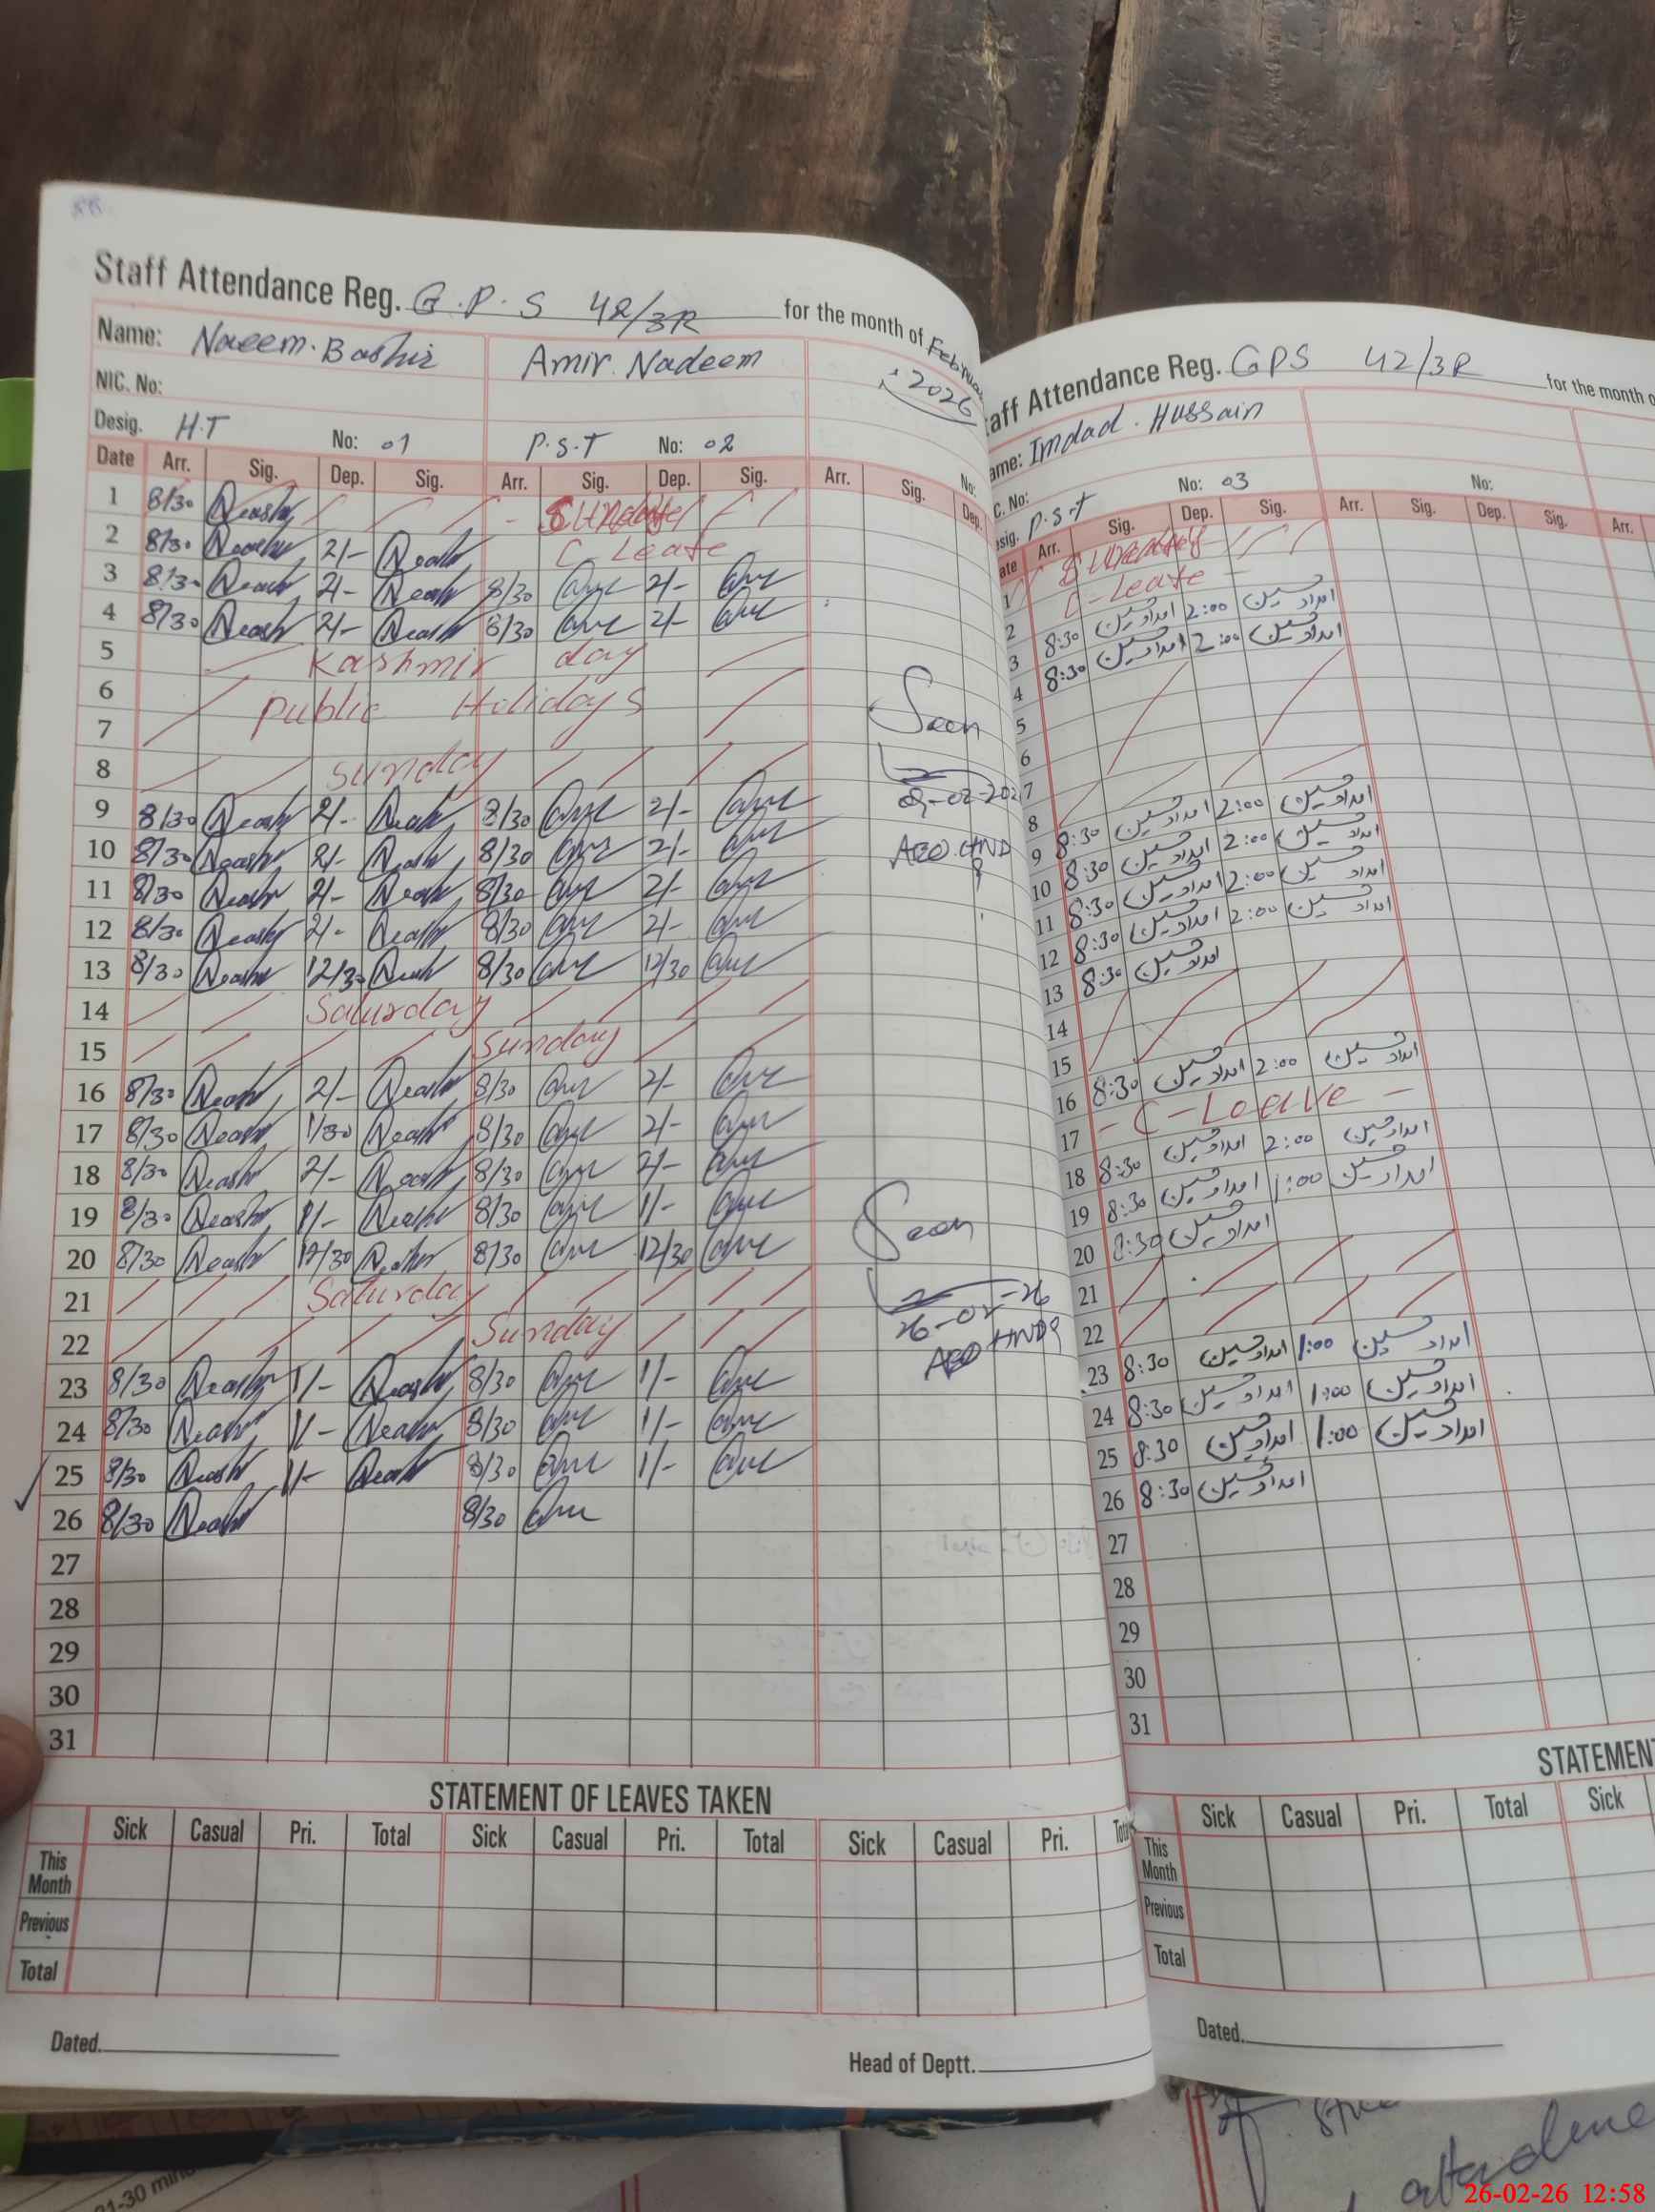 Staff Attendance Reg. G.P.S 42/3R for the month of February 2026
Name: Naeem Bashir Amir Nadeem
NIC. No:
Desig. H.T No: 01 P.S.T No: 02 No:
Date Arr. Sig. Dep. Sig. Arr. Sig. Dep. Sig. Arr. Sig. Dep.
1 8/30 Sunday
2 8/30 2/- C Leate
3 8/30 2/- 8/30 2/-
4 8/30 2/- 8/30 2/-
5 Kashmir day
6 Public Holidays
7
8 Sunday
9 8/30 2/- 8/30 2/-
10 8/30 2/- 8/30 2/-
11 8/30 2/- 8/30 2/-
12 8/30 2/- 8/30 2/-
13 8/30 12/30 8/30 12/30
14 Saturday
15 Sunday
16 8/30 2/- 8/30 2/-
17 8/30 1/30 8/30 2/-
18 8/30 2/- 8/30 2/-
19 8/30 1/- 8/30 1/-
20 8/30 12/30 8/30 12/30
21 Saturday
22 Sunday
23 8/30 1/- 8/30 1/-
24 8/30 1/- 8/30 1/-
25 8/30 1/- 8/30 1/-
26 8/30 8/30
27
28
29
30
31
Seen
09-02-202
AEO HND
Seen
26-02-26
AEO HND
STATEMENT OF LEAVES TAKEN
Sick Casual Pri. Total Sick Casual Pri. Total Sick Casual Pri. Total
This Month
Previous
Total
Dated. Head of Deptt.
aff Attendance Reg. GPS 42/3R for the month o
ame: Imdad Hussain
C. No:
sig. P.S.T No: 03 No:
ate Arr. Sig. Dep. Sig. Arr. Sig. Dep. Sig. Arr.
1 Sunday
2 C-Leate
3 8:30 امداد حسین 2:00 امداد حسین
4 8:30 امداد حسین 2:00 امداد حسین
5
6
7
8
9 8:30 امداد حسین 2:00 امداد حسین
10 8:30 امداد حسین 2:00 امداد حسین
11 8:30 امداد حسین 2:00 امداد حسین
12 8:30 امداد حسین 2:00 امداد حسین
13 8:30 امداد حسین
14
15
16 8:30 امداد حسین 2:00 امداد حسین
17 - C-Leave -
18 8:30 امداد حسین 2:00 امداد حسین
19 8:30 امداد حسین 1:00 امداد حسین
20 8:30 امداد حسین
21
22
23 8:30 امداد حسین 1:00 امداد حسین
24 8:30 امداد حسین 1:00 امداد حسین
25 8:30 امداد حسین 1:00 امداد حسین
26 8:30 امداد حسین
27
28
29
30
31
STATEMEN
Sick Casual Pri. Total Sick
This Month
Previous
Total
Dated.
26-02-26 12:58